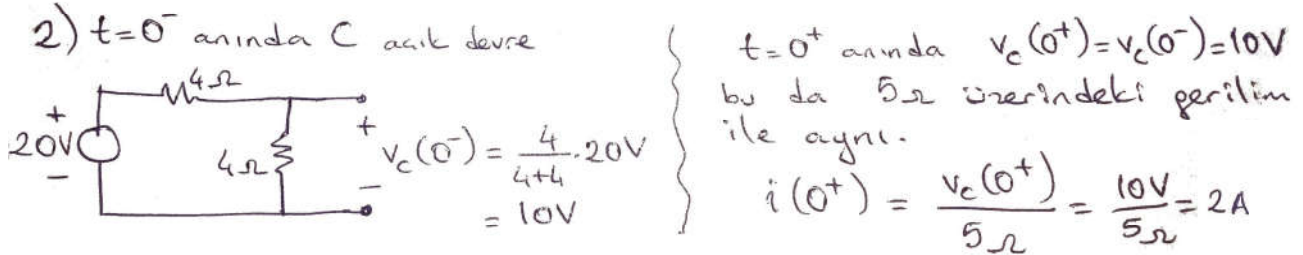 2) t=0⁻ anında C açık devre
4Ω
+
20V
−
4Ω
+
−
v_c(0⁻) = 4/(4+4) · 20V
= 10V
t=0⁺ anında v_c(0⁺)=v_c(0⁻)=10V
bu da 5Ω üzerindeki gerilim
ile aynı.
i(0⁺) = v_c(0⁺)/5Ω = 10V/5Ω = 2A